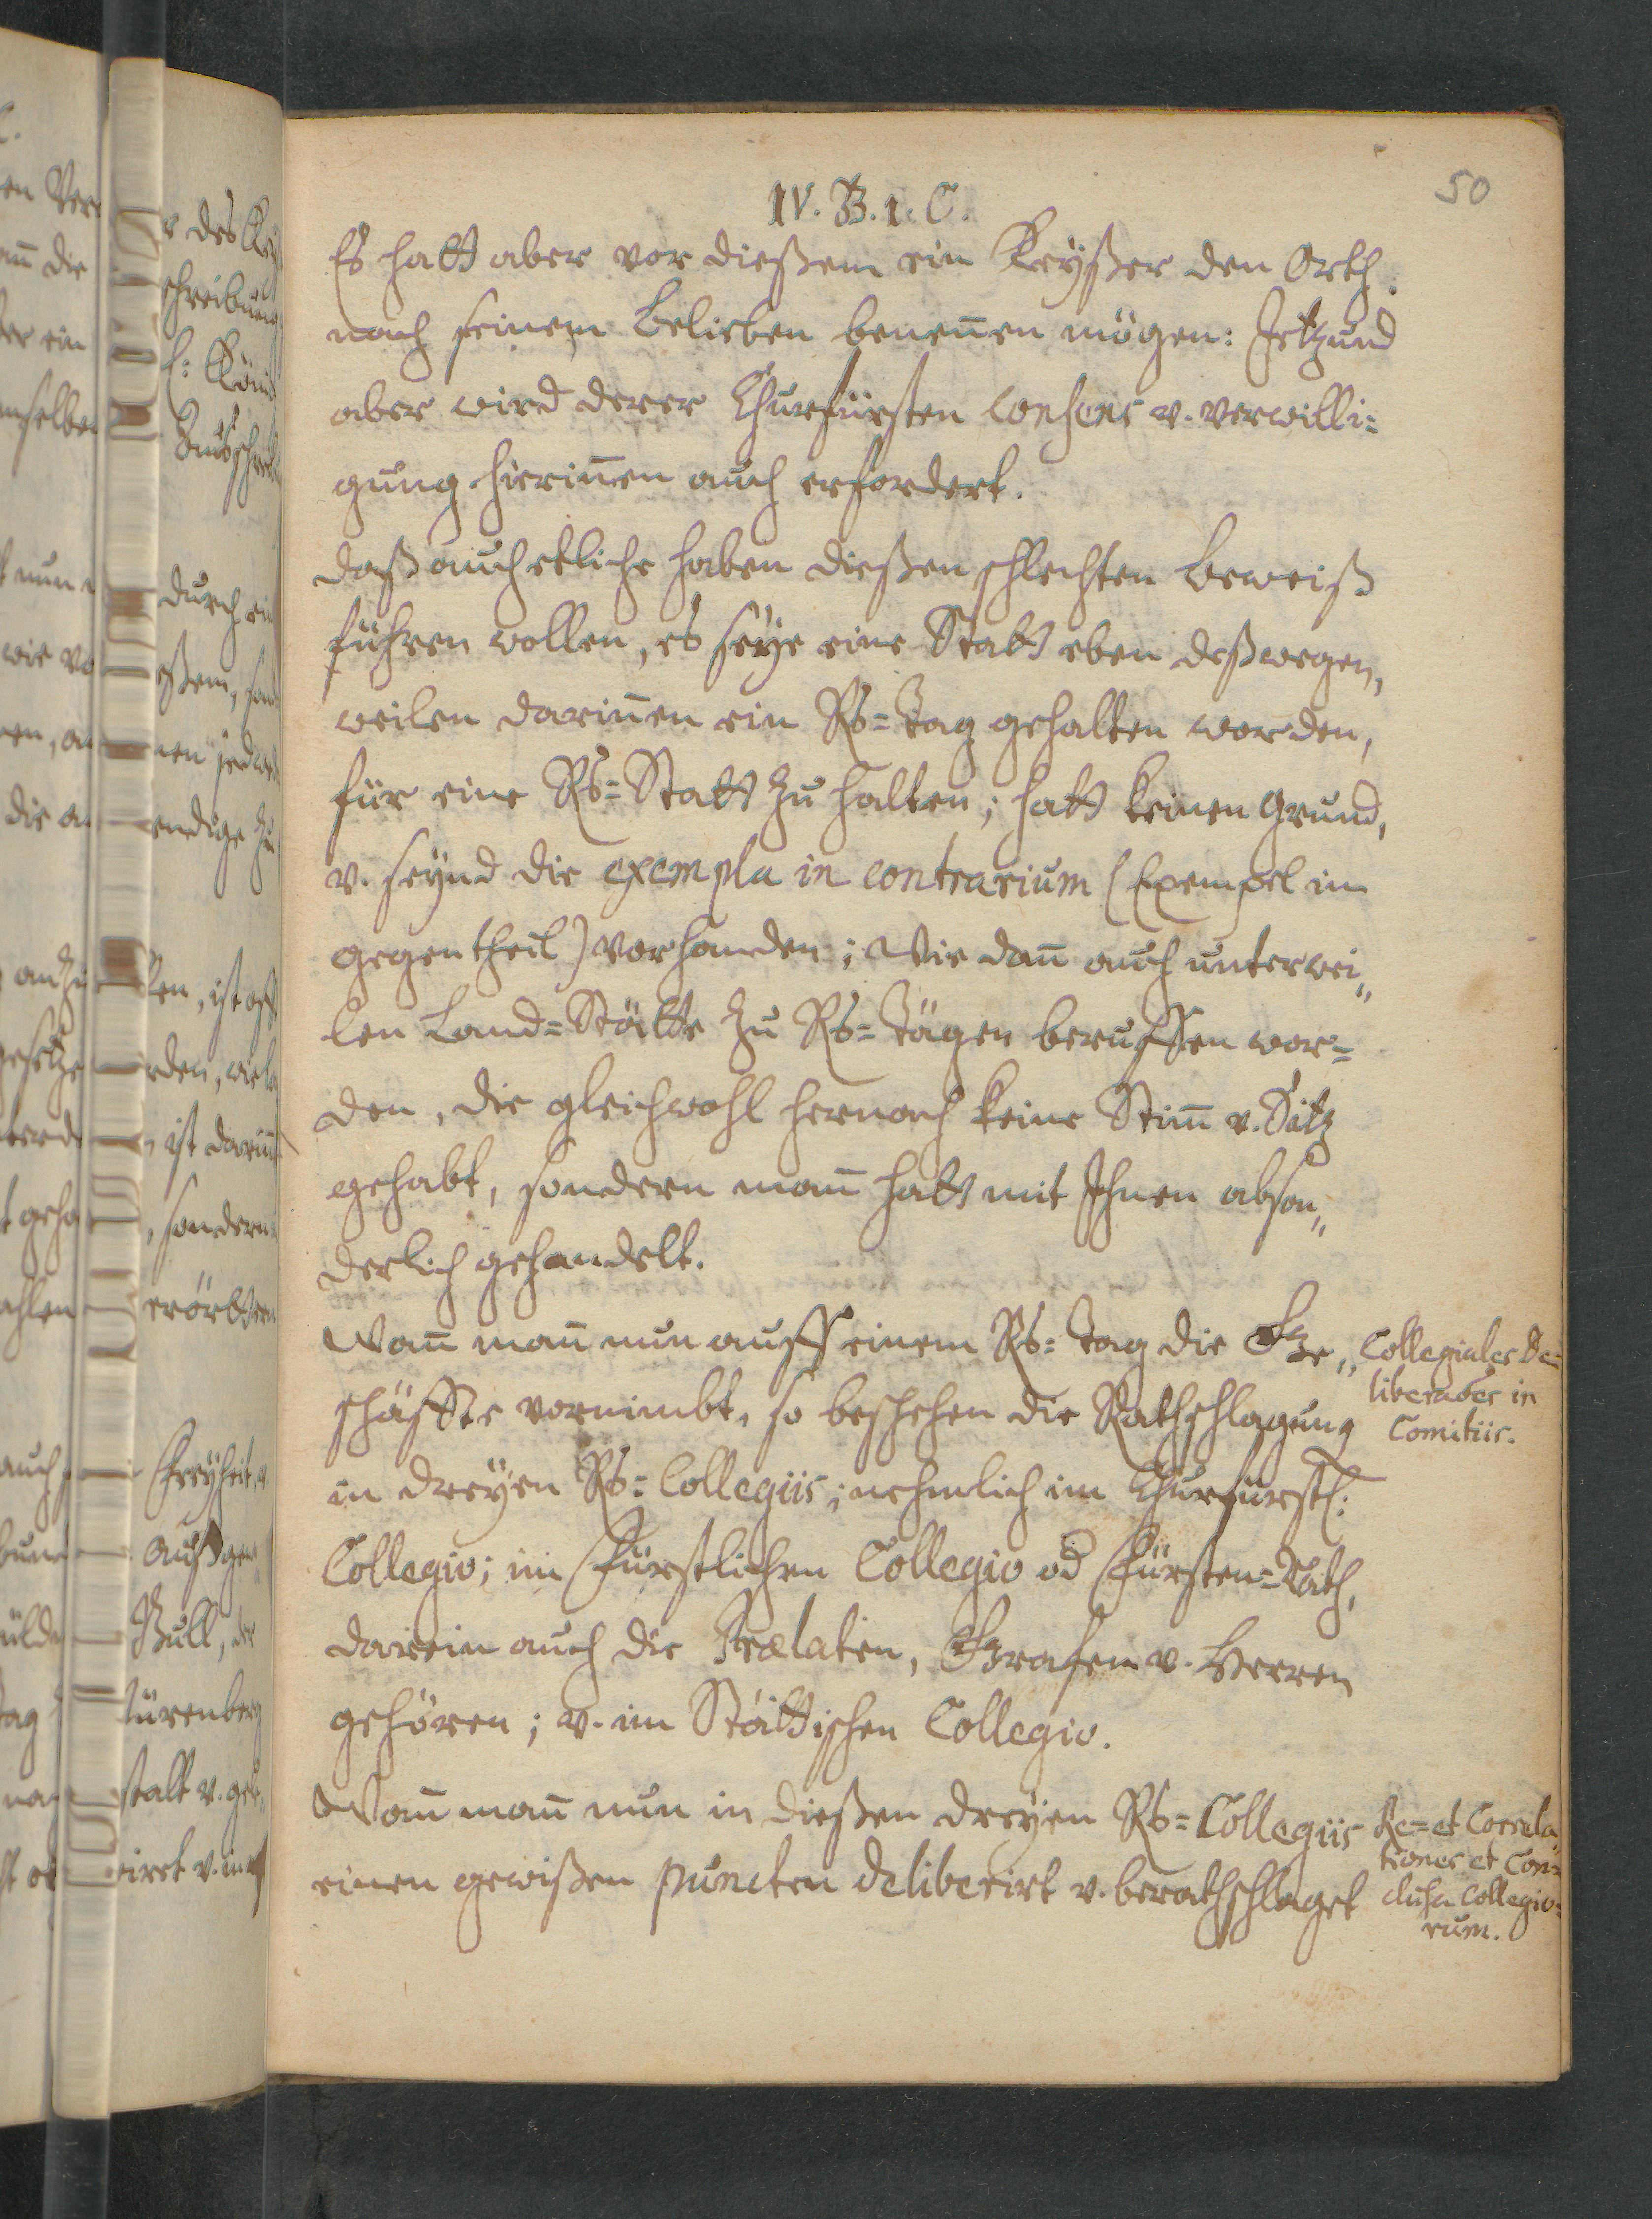 50
IV. B. 1. C.
Es hatt aber vor dießem ein Keÿßer den Orth
nach seinem belieben benen̄en mögen: Jetzund
aber wird derer Churfürsten consens v. verwilli=
gung hierin̄en auch erfordert.
daß auch etliche haben dießen schlechten beweiß
führen wollen, es seÿe eine Statt eben deßwegen,
weilen darin̄en ein Rs=tag gehalten worden,
für eine Rs=Statt zu halten; hatt keinen Grund,
v. seÿnd die exempla in contrarium (Exempel im
gegentheil) vorhanden; Wie dan̄ auch unterwei„
len Land=Stätte zu Rs=tägen beruffen wor=
den, die gleichwohl hernach keine Stim̄ v. Sitz
gehabt, sondern man̄ hatt mit Ihnen abson„
derlich gehandelt.
Wan̄ man̄ nun auff einem Rs=tag die Ge„
schäffte vornimbt, so beschehen die Rathschlagung
in dreÿen Rs=Collegiis; nehmlich im Churfürstl:
Collegio; im Fürstlichen Collegio od Fürsten=Rath,
darein auch die Prælaten, Grafen v. Herren
gehören; v. im Stättischen Collegio.
Wan̄ man̄ nun in dießen dreÿen Rs=Collegiis
einen gewißen puncten deliberirt v. berathschlaget
Collegiales de=
liberaões in
Comitiis.
Re= et Correla„
tiones et Con=
clusa Collegio=
rum.